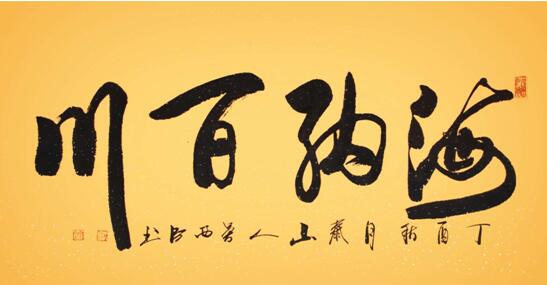 海纳百川
丁酉秋月 山人 西 书